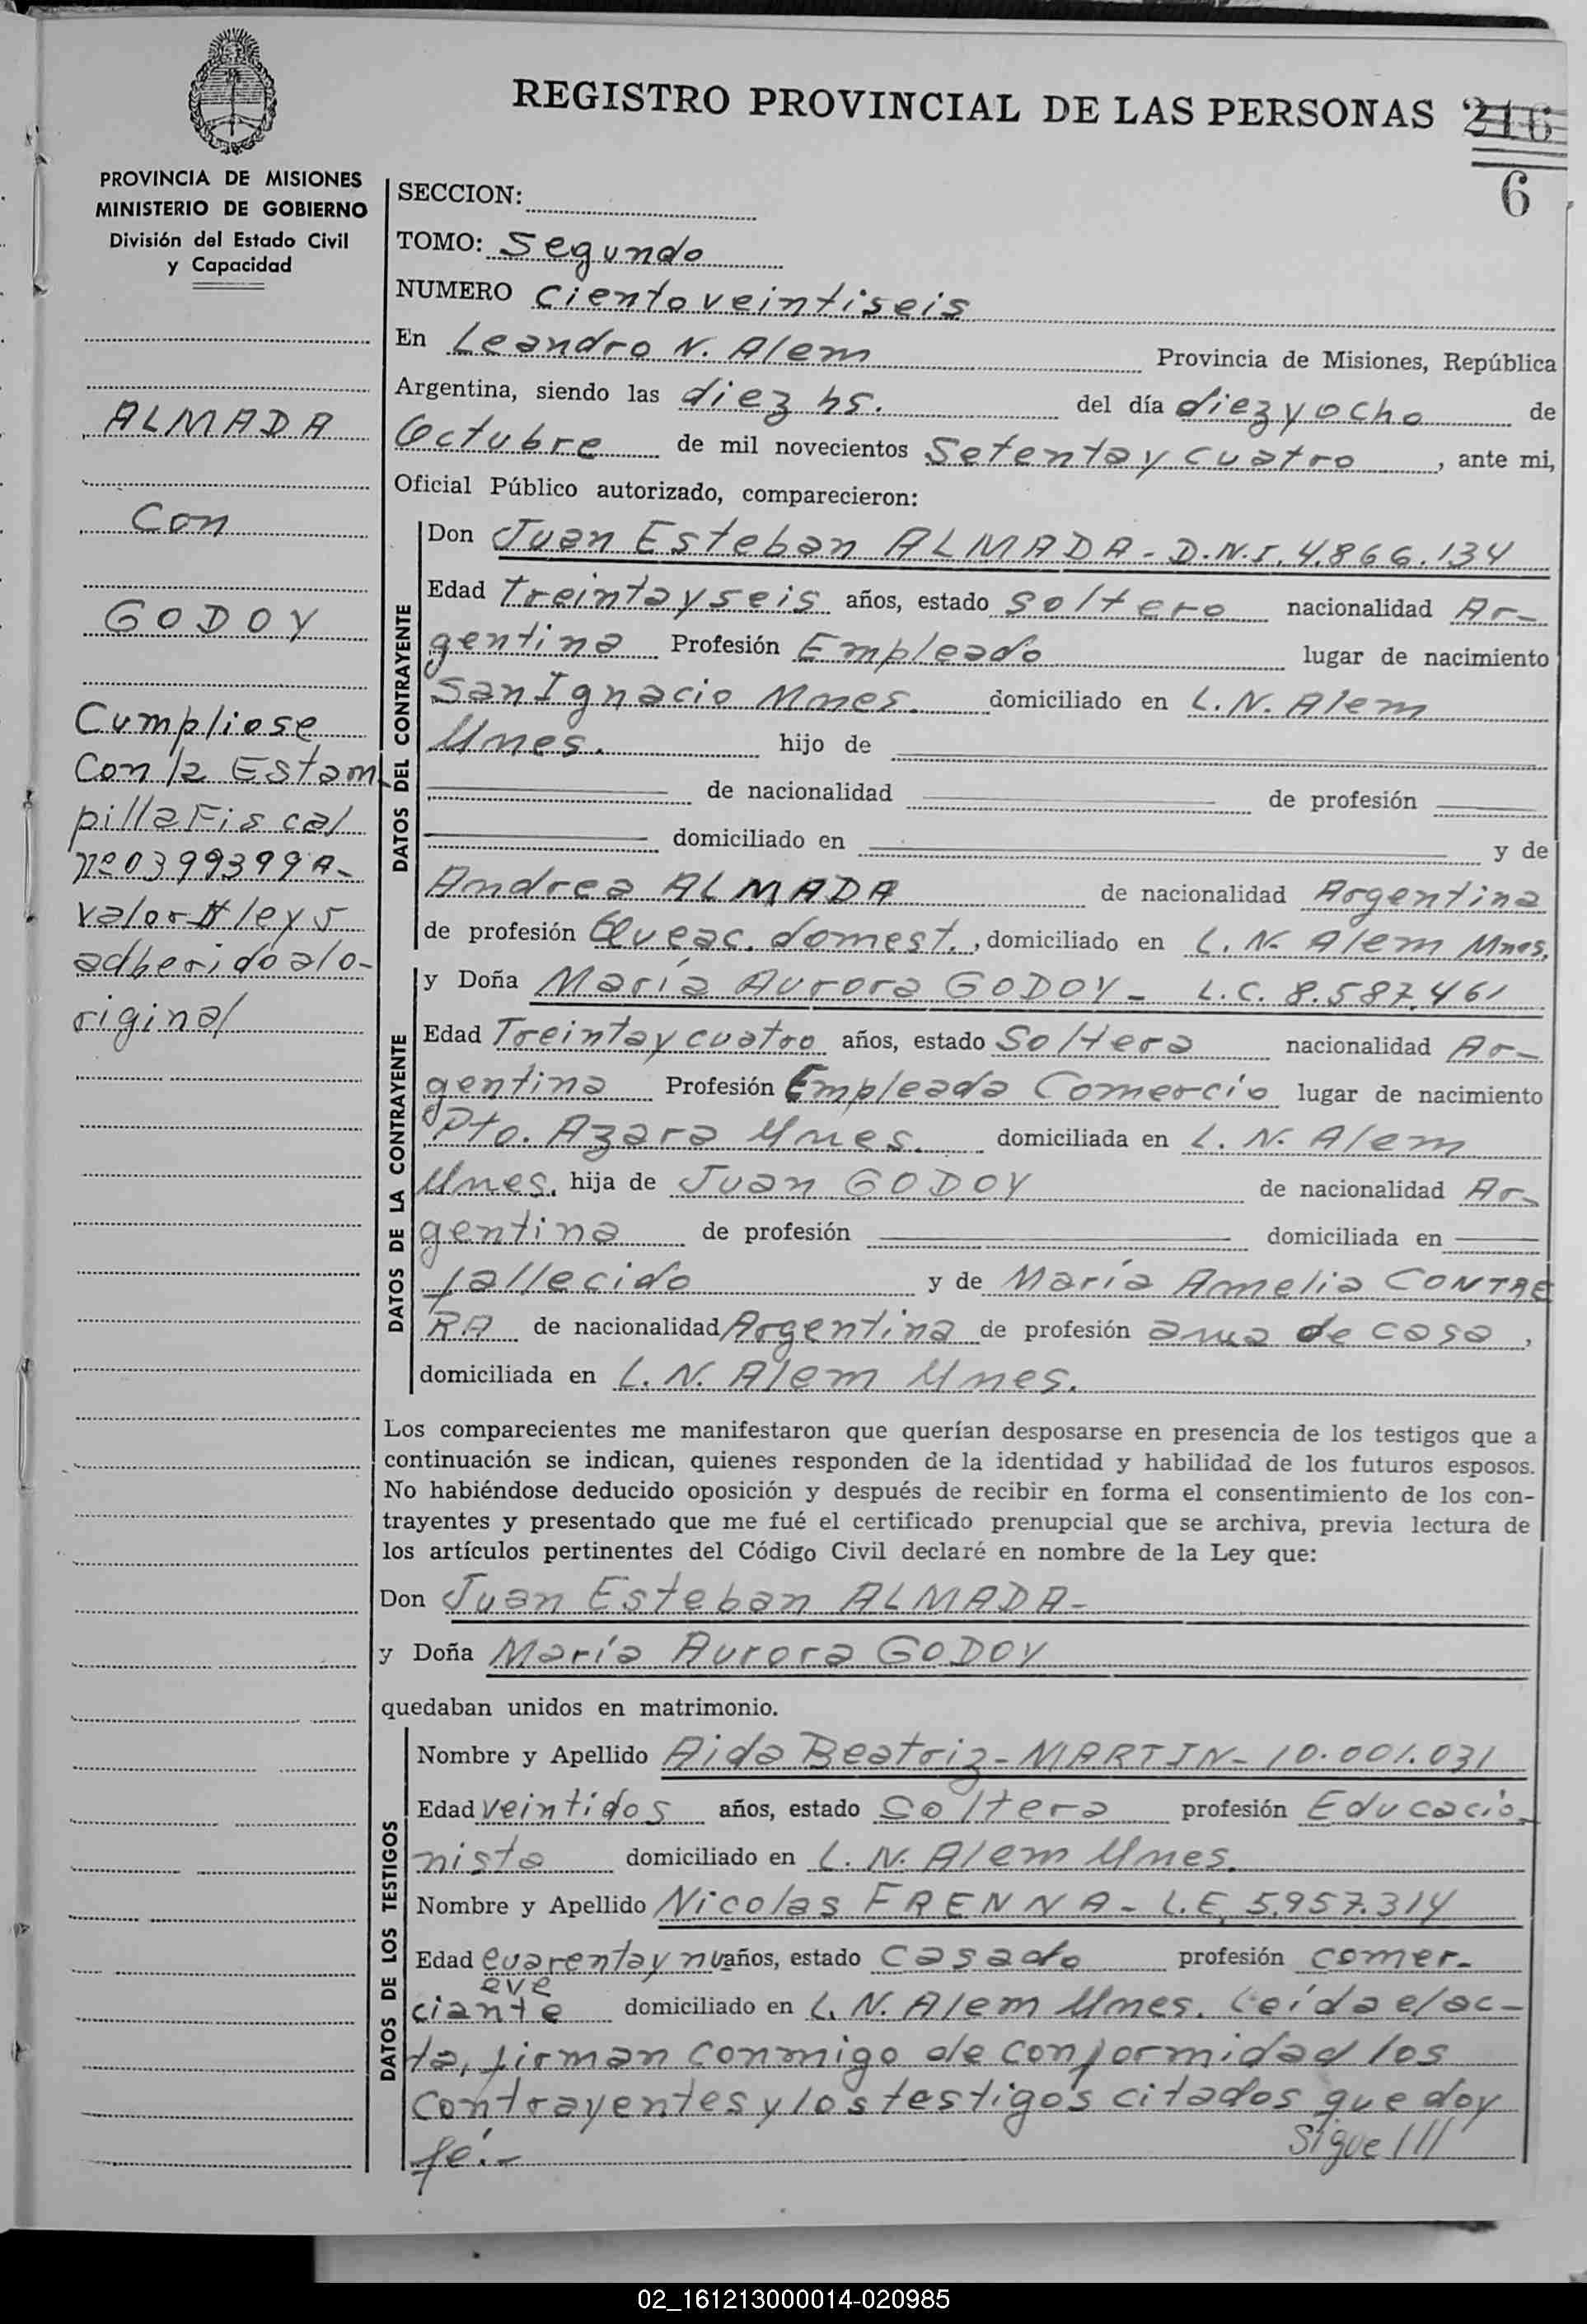 REGISTRO PROVINCIAL DE LAS PERSONAS 216
6
PROVINCIA DE MISIONES
MINISTERIO DE GOBIERNO
División del Estado Civil
y Capacidad
ALMADA
Con
GODOY
Cumpliose
Con la Estam
pilla Fiscal
nº 0399399 A-
valor $ ley 5
adherido al o-
riginal
SECCION:
TOMO: Segundo
NUMERO Ciento veintiseis
En Leandro N. Alem Provincia de Misiones, República
Argentina, siendo las diez hs. del día diez y ocho de
Octubre de mil novecientos Setenta y cuatro, ante mi,
Oficial Público autorizado, comparecieron:
DATOS DEL CONTRAYENTE
Don Juan Esteban ALMADA - D.N.I. 4.866.134
Edad Treinta y seis años, estado Soltero nacionalidad Ar-
gentina Profesión Empleado lugar de nacimiento
San Ignacio Mnes. domiciliado en L. N. Alem
Mnes. hijo de
de nacionalidad de profesión
domiciliado en y de
Andrea ALMADA de nacionalidad Argentina
de profesión Queac. domest., domiciliado en L. N. Alem Mnes.
DATOS DE LA CONTRAYENTE
y Doña María Aurora GODOY - L.C. 8.587.461
Edad Treinta y cuatro años, estado Soltera nacionalidad Ar-
gentina Profesión Empleada Comercio lugar de nacimiento
Pto. Azara Mnes. domiciliada en L. N. Alem
Mnes. hija de Juan GODOY de nacionalidad Ar-
gentina de profesión domiciliada en
fallecido y de María Amelia CONTRE
RA de nacionalidad Argentina de profesión ama de casa,
domiciliada en L. N. Alem Mnes.
Los comparecientes me manifestaron que querían desposarse en presencia de los testigos que a
continuación se indican, quienes responden de la identidad y habilidad de los futuros esposos.
No habiéndose deducido oposición y después de recibir en forma el consentimiento de los con-
trayentes y presentado que me fué el certificado prenupcial que se archiva, previa lectura de
los artículos pertinentes del Código Civil declaré en nombre de la Ley que:
Don Juan Esteban ALMADA-
y Doña María Aurora GODOY
quedaban unidos en matrimonio.
DATOS DE LOS TESTIGOS
Nombre y Apellido Aida Beatriz - MARTIN - 10.001.031
Edad veintidos años, estado Soltera profesión Educacio-
nista domiciliado en L. N. Alem Mnes.
Nombre y Apellido Nicolas FRENNA - L.E. 5.957.314
Edad cuarenta y nu años, estado Casado profesión comer-
eve
ciante domiciliado en L. N. Alem Mnes. Leída el ac-
ta, firman conmigo de conformidad los
contrayentes y los testigos citados que doy
fé.-
Sigue ///
02_161213000014-020985